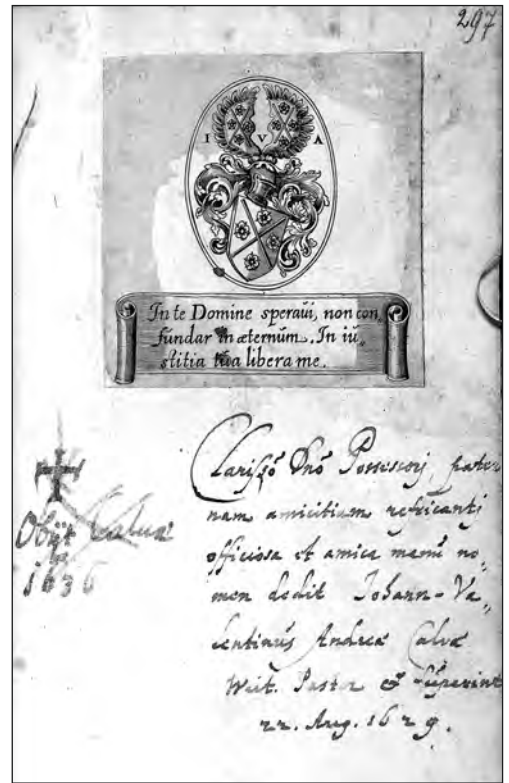 297
I V A
In te Domine speraui, non con„
fundar in æternum. In iu„
stitia tua libera me.
Clariſſo Dno Possessorj, pater
nam amicitiam refricanti
officiosa et amica manu no„
men dedit Johann-Va„
lentinus Andreæ Calvæ
Wirt. Pastor & Superint
22. Aug. 1629.
Obijt Calvæ
1636